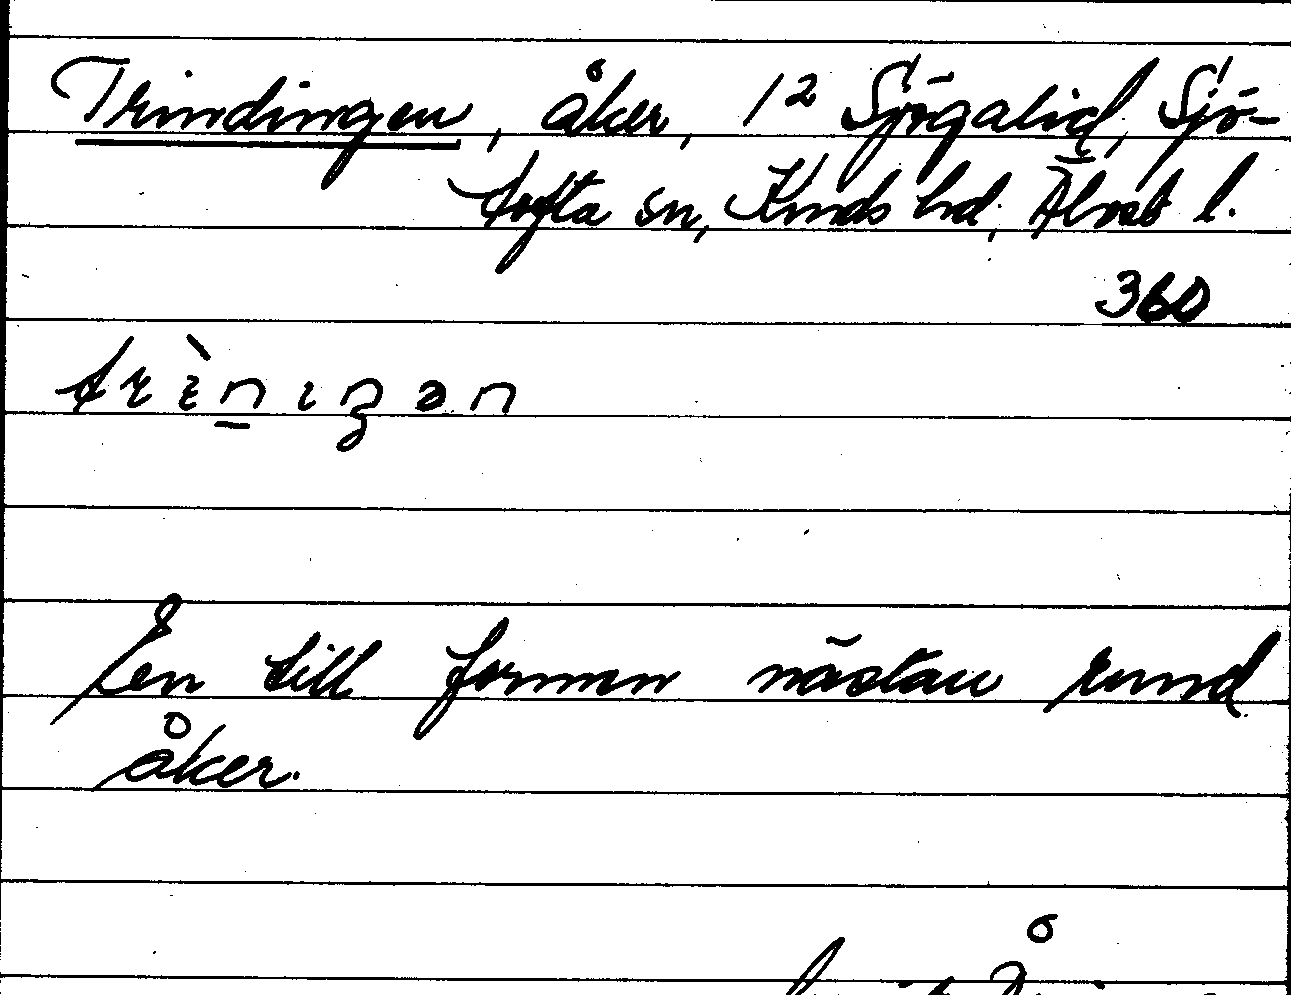 Trindingen, åker, 1² Sjögalid, Sjö-
tofta sn, Kinds hd, Älvsb l.
360
En till formen nästan rund
åker.